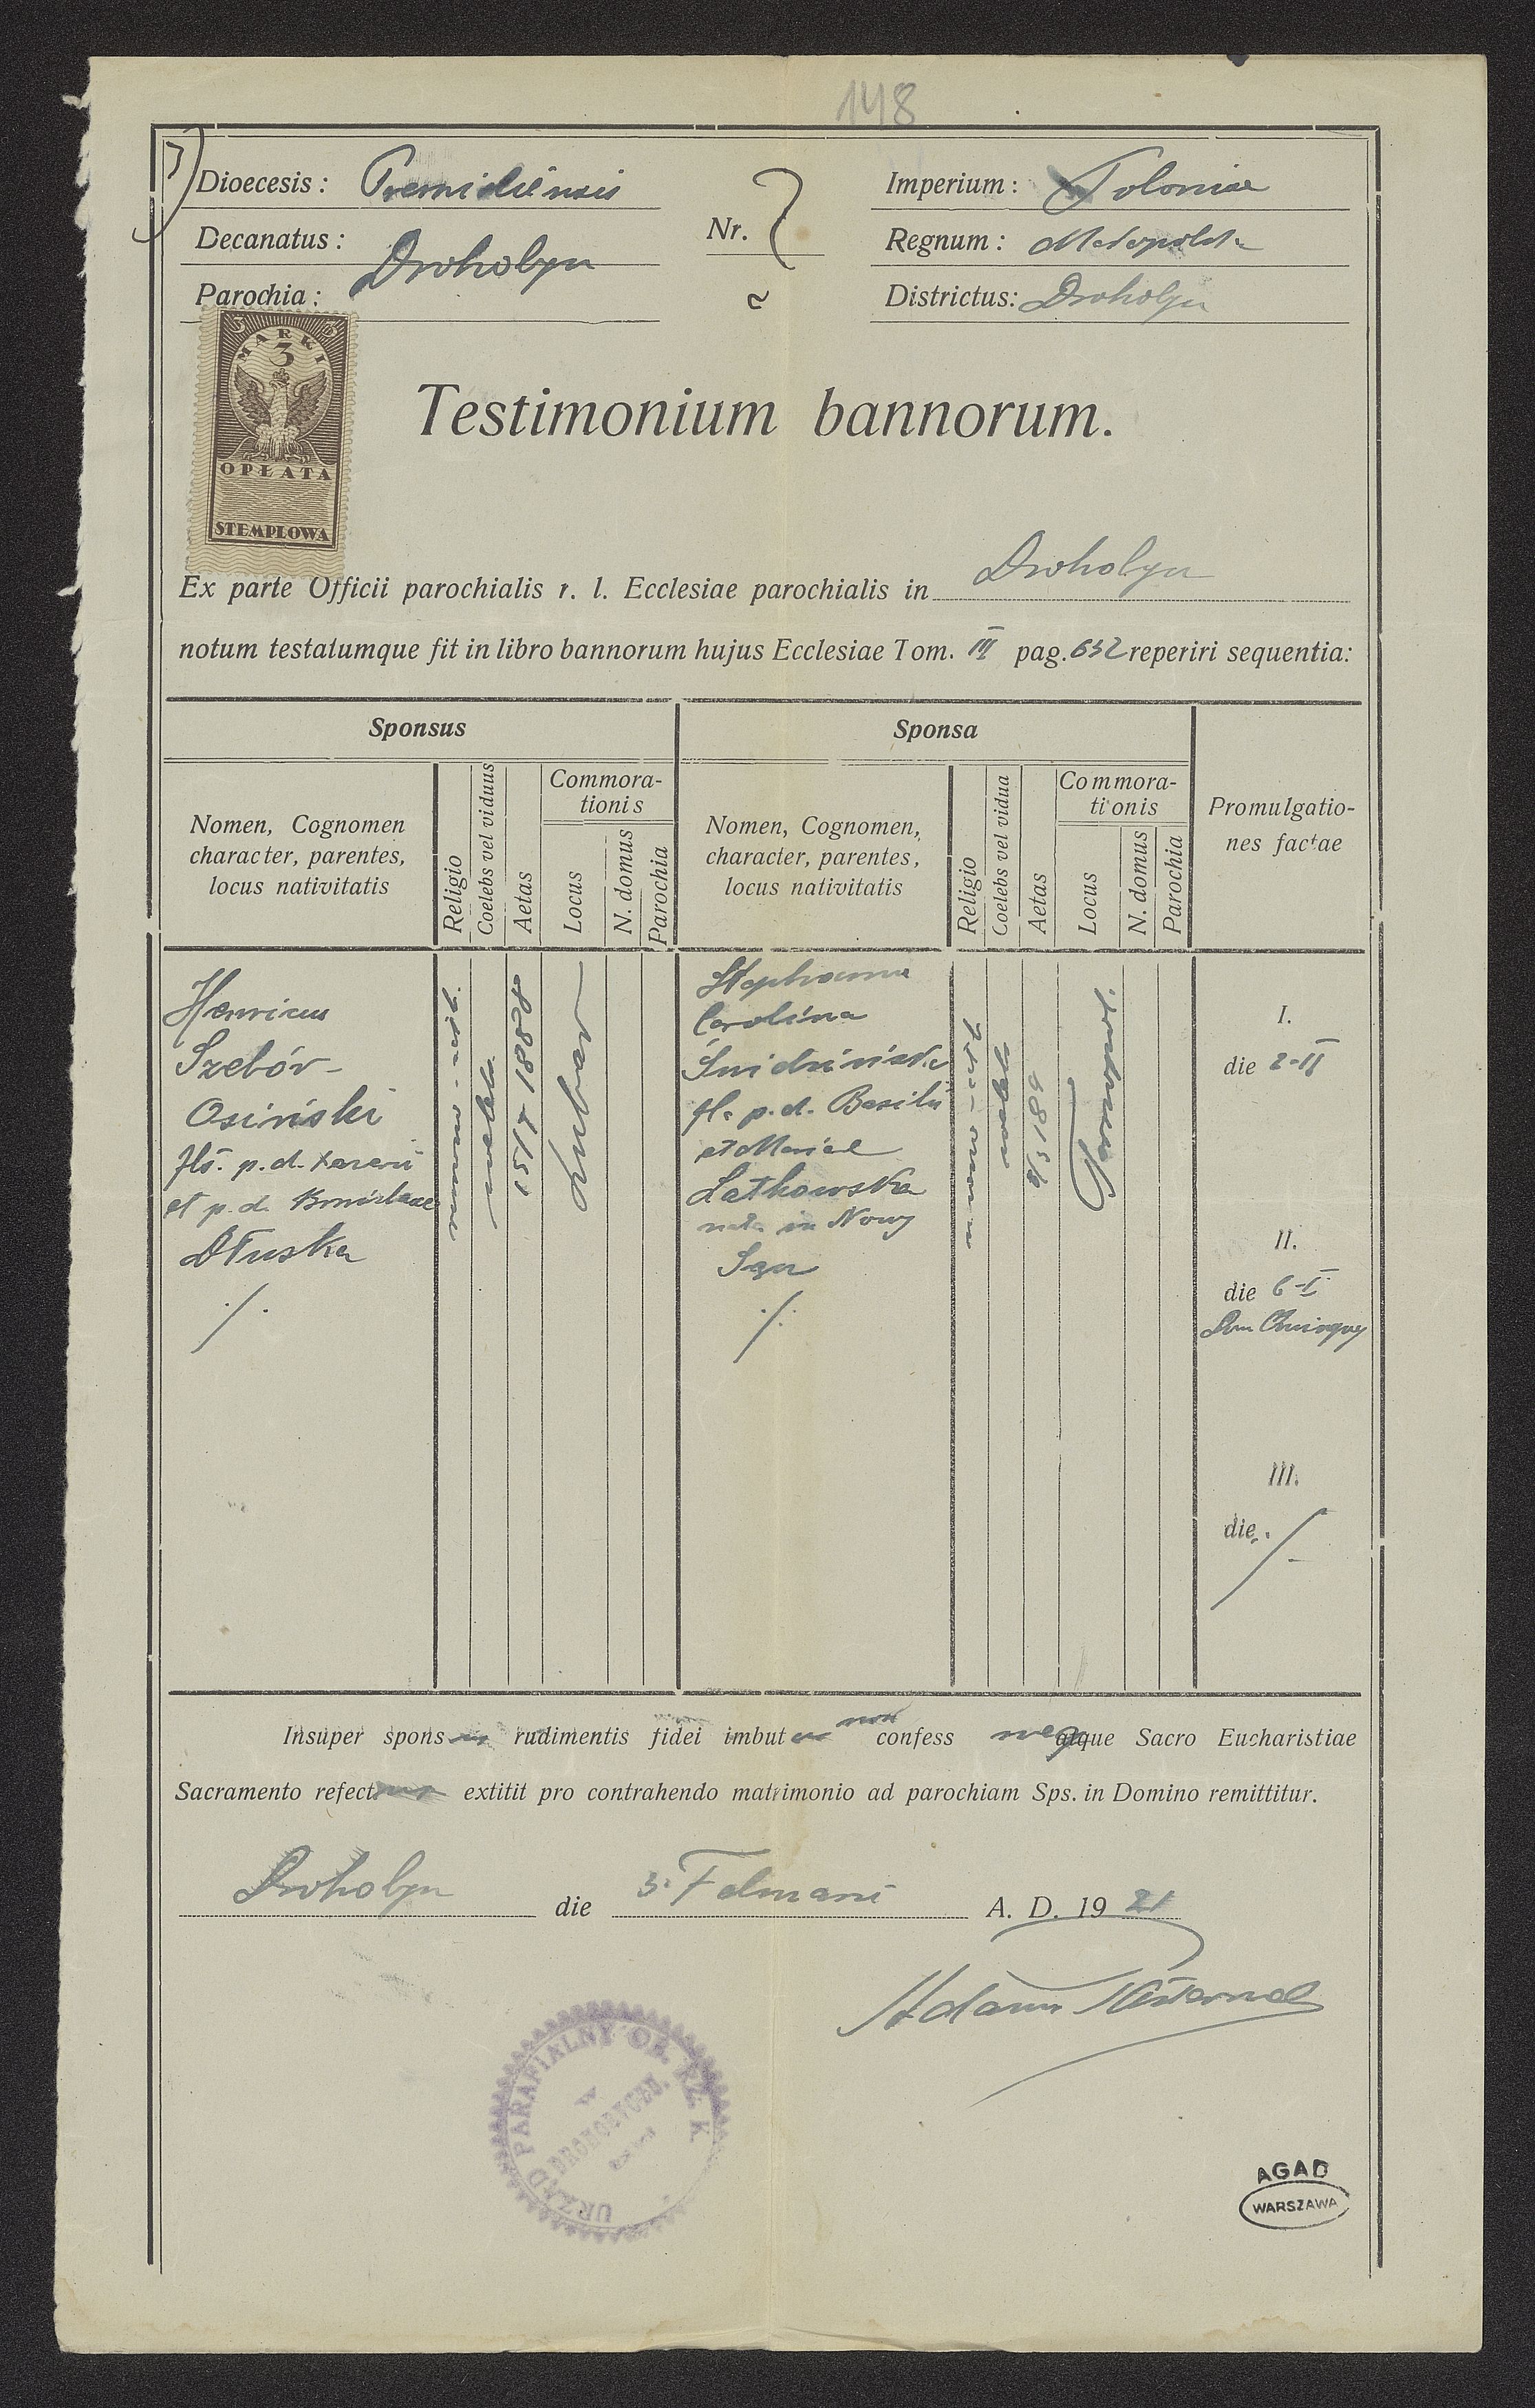 148
Dioecesis: Premisliensis
Nr.
Imperium: Poloniae
Decanatus: Drohobycz
Regnum: Małopolska
Parochia:
Districtus: Drohobycz
3 3
MARKI
3
OPŁATA
STEMPLOWA
Testimonium bannorum.
Ex parte Officii parochialis r. l. Ecclesiae parochialis in Drohobycz
notum testatumque fit in libro bannorum hujus Ecclesiae Tom. III pag. 632 reperiri sequentia:
Sponsus
Nomen, Cognomen
character, parentes,
locus nativitatis
Religio
Coelebs vel viduus
Aetas
Commora-
tionis
Locus
N. domus
Parochia
Sponsa
Nomen, Cognomen,
character, parentes,
locus nativitatis
Religio
Coelebs vel vidua
Aetas
Commora-
tionis
Locus
N. domus
Parochia
Promulgatio-
nes factae
Henricus
Szebór-
Osiński
fls. p.d.
et p.d.
Dłuska
15/7 1888
Stephania
Carolina
Śnidzińska
fl. p.d. Basilii
et Mariae
Latkowska
nata in Nowy
Sącz
I.
die 2-II
II.
die 6-II
Dom Quinqu
III.
die
Insuper spons rudimentis fidei imbut non confess neque atque Sacro Eucharistiae
Sacramento refect extitit pro contrahendo matrimonio ad parochiam Sps. in Domino remittitur.
Drohobycz die 3. Februarii A. D. 19 21
Adam
URZĄD PARAFIALNY OB. RZ. K.
W
DROHOBYCZU.
AGAD
WARSZAWA